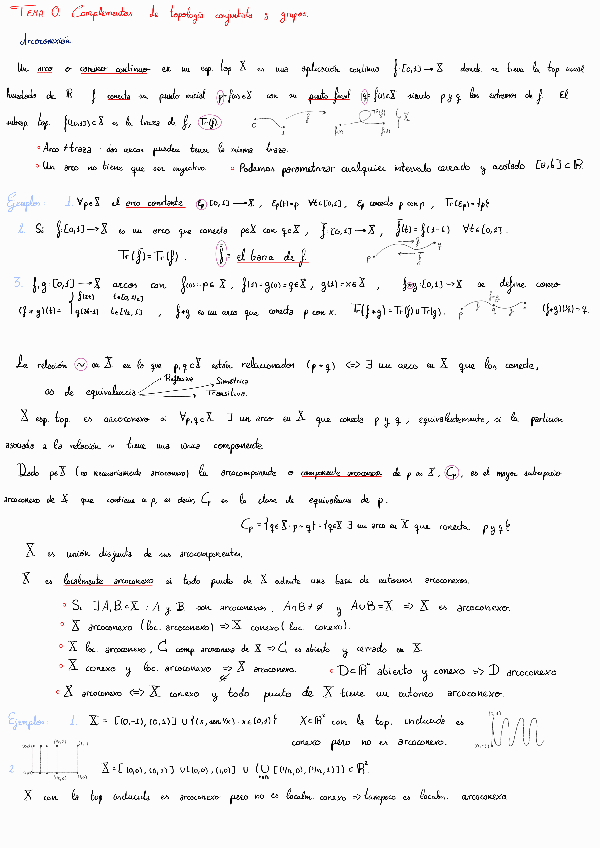 TEMA 0. Complementos de topología conjuntista y grupos.
Arcoconexión
Un arco o camino continuo en un esp. top X es una aplicación continua f:[0,1]→X donde se tiene la top usual
heredada de ℝ f conecta su punto inicial p=f(0)∈X con su punto final q=f(1)∈X siendo p y q los extremos de f. El
subesp. top. f([0,1])⊂X es la traza de f, Tr(f).
• Arco≠traza: dos arcos pueden tener la misma traza.
• Un arco no tiene que ser inyectivo. • Podemos parametrizar cualquier intervalo cerrado y acotado [a,b]⊂ℝ.
Ejemplos: 1. ∀p∈X el arco constante εp:[0,1]→X, εp(t)=p ∀t∈[0,1], εp conecta p con p, Tr(εp)={p}
2. Si f:[0,1]→X es un arco que conecta p∈X con q∈X, f̄:[0,1]→X, f̄(t)=f(1-t) ∀t∈[0,1].
Tr(f)=Tr(f̄). f̄= el barra de f.
3. f,g:[0,1]→X arcos con f(0)=p∈X, f(1)=g(0)=q∈X, g(1)=r∈X, f*g:[0,1]→X se define como
(f*g)(t)={f(2t) t∈[0,1/2] g(2t-1) t∈[1/2,1], f*g es un arco que conecta p con r. Tr(f*g)=Tr(f)∪Tr(g). (f*g)(1/2)=q.
La relación ~ en X en la que p,q∈X están relacionados (p~q) <=> ∃ un arco en X que los conecte,
es de equivalencia Reflexiva Simétrica Transitiva.
X esp. top. es arcoconexo si ∀p,q∈X ∃ un arco en X que conecta p y q, equivalentemente, si la partición
asociada a la relación ~ tiene una única componente.
Dado p∈X (no necesariamente arcoconexo) la arcocomponente o componente arcoconexa de p en X, Cp, es el mayor subespacio
arcoconexo de X que contiene a p, es decir, Cp es la clase de equivalencia de p.
Cp={q∈X: p~q}={q∈X ∃ un arco en X que conecta p y q}
X es unión disjunta de sus arcocomponentes.
X es localmente arcoconexo si todo punto de X admite una base de entornos arcoconexos.
• Si ∃A,B⊂X: A y B son arcoconexos, A∩B≠∅ y A∪B=X => X es arcoconexo.
• X arcoconexo (loc. arcoconexo) => X conexo (loc. conexo).
• X loc. arcoconexo, C comp arcoconexa de X => C es abierto y cerrado en X.
• X conexo y loc. arcoconexo => X arcoconexo. • D⊂ℝⁿ abierto y conexo => D arcoconexo
• X arcoconexo <=> X conexo y todo punto de X tiene un entorno arcoconexo.
Ejemplos: 1. X = [(0,-1),(0,1)] ∪ {(x, sen 1/x): x∈(0,1)} X⊂ℝ² con la top. inducida es
conexo pero no es arcoconexo.
2 X=[(0,0),(0,1)] ∪ [(0,0),(1,0)] ∪ (∪ [(1/n,0),(1/n,1)]) ⊂ ℝ².
X con la top inducida es arcoconexo pero no es localm. conexo => tampoco es localm. arcoconexo